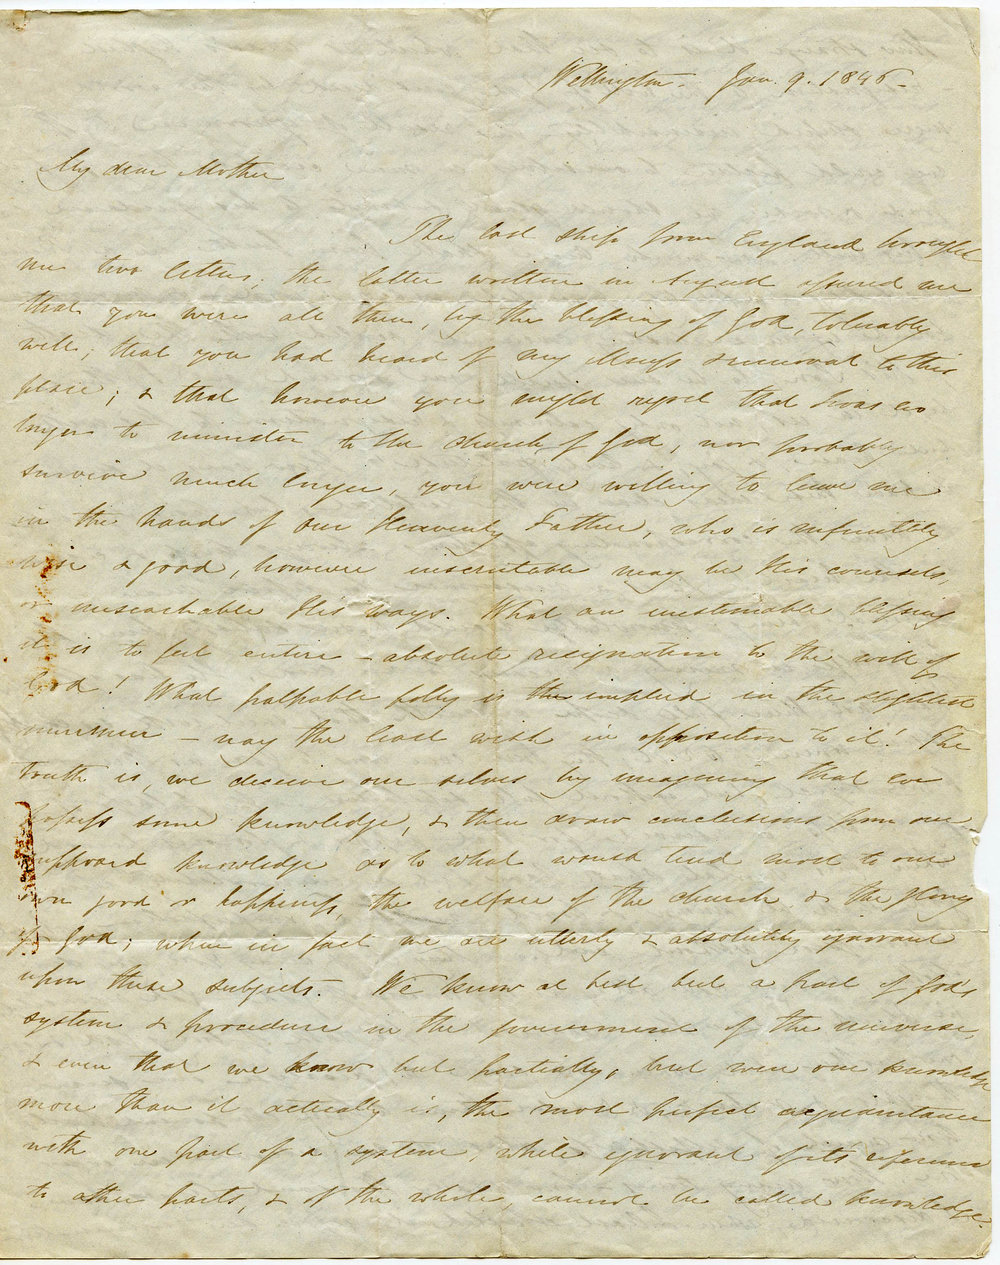 Wellington. Jan. 9. 1846.
My dear Mother
The last ship from England brought
me two letters, the latter written in August assured me
that you were all then, by the blessing of God, tolerably
well; that you had heard of my illness & removal to this
place; & that however you might regret that I was no
longer to minister to the church of God, nor probably
survive much longer, you were willing to leave me
in the hands of our Heavenly Father, who is infinitely
wise & good, however inscrutable may be His counsels,
or unsearchable His ways. What an inestimable blessing
it is to feel entire – absolute resignation to the will of
God! What palpable folly is implied in the slightest
murmur – nay the least wish in opposition to it! The
truth is, we deceive our selves by imagining that we
possess some knowledge, & then draw conclusions from our
supposed knowledge as to what would tend most to our
own good or happiness, the welfare of the church & the glory
of God; when in fact we are utterly & absolutely ignorant
upon these subjects. We know at best but a part of God's
system & procedure in the government of the universe,
& even that we know but partially, but were our knowledge
more than it actually is, the most perfect acquaintance
with one part of a system, while ignorant of its reference
to other parts, & of the whole, cannot be called knowledge.